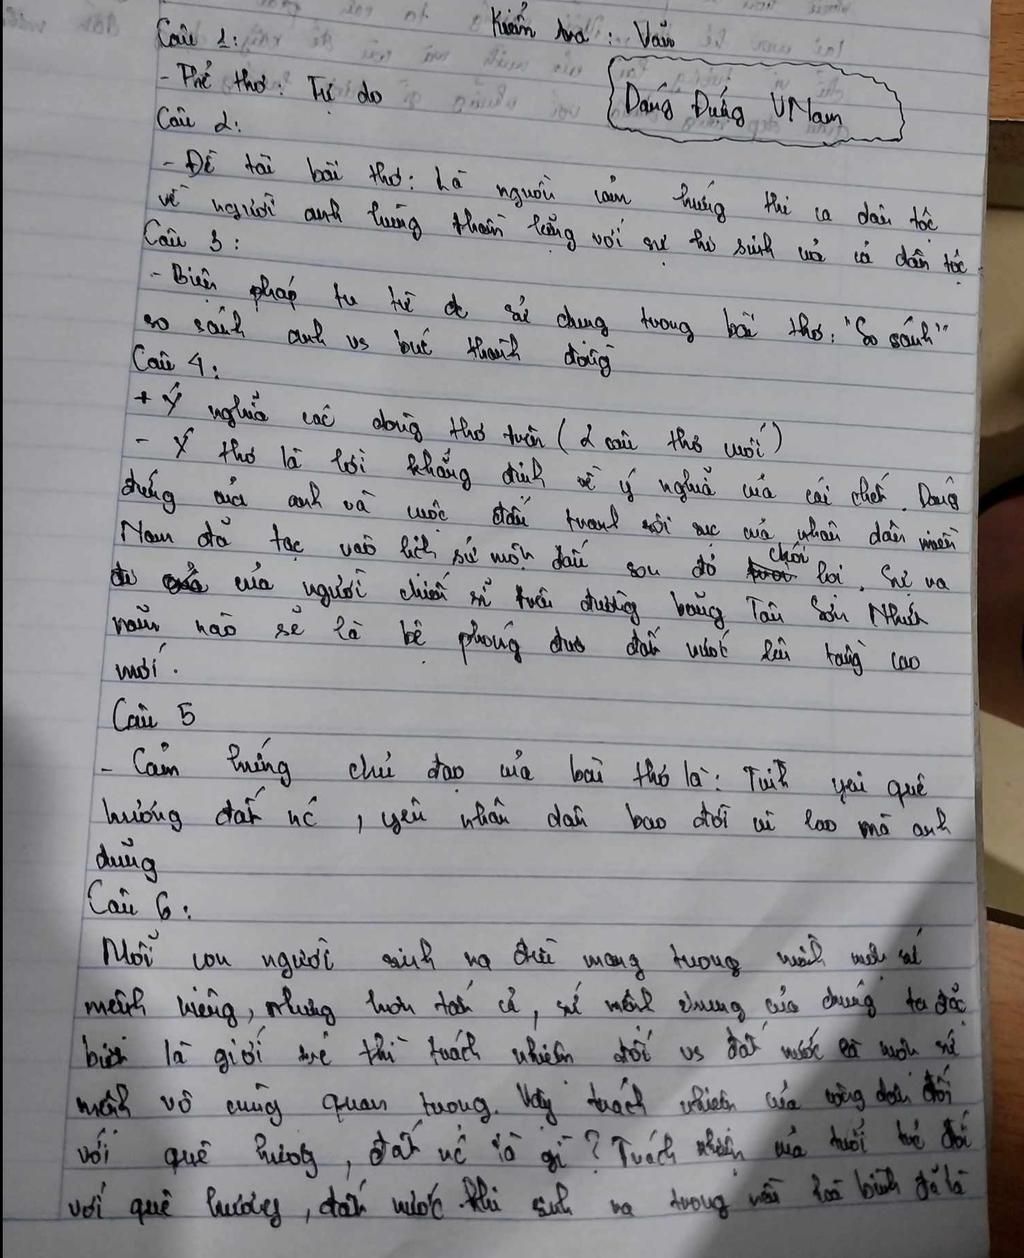 Kiểm tra: Văn
Câu 1:
- Thể thơ: Tự do
Dáng Đứng VNam
Câu 2:
- Đề tài bài thơ: Là nguồn cảm hứng thi ca dân tộc
về người anh hùng thầm lặng với sự hi sinh và cả dân tộc.
Câu 3:
- Biện pháp tu từ đc sử dụng trong bài thơ: "So sánh"
so sánh anh vs bức thành đồng
Câu 4:
+ Ý nghĩa các dòng thơ trên (2 câu thơ cuối)
- Ý thơ là lời khẳng định về ý nghĩa của cái chết. Dáng
đứng của anh và cuộc đấu tranh sôi sục của nhân dân miền
Nam đã tạc vào lịch sử một dấu son đỏ chói lọi. Sự ra
đi của người chiến sĩ trên đường băng Tân Sơn Nhứt
năm nào sẽ là bệ phóng đưa đất nước lên tầng cao
mới.
Câu 5
- Cảm hứng chủ đạo của bài thơ là: Tình yêu quê
hương đất nc, yêu nhân dân bao đời vì lao mà anh
dũng
Câu 6:
Mỗi con người sinh ra đều mang trong mình một sứ
mệnh riêng, nhưng hơn tất cả, sứ mệnh chung của chúng ta đặc
biệt là giới trẻ thì trách nhiệm đối vs đất nước là một sứ
mệnh vô cùng quan trọng. Vậy trách nhiệm của công dân đối
với quê hương, đất nc là gì? Trách nhiệm của tuổi trẻ đối
với quê hương, đất nước khi sinh ra trong nền hoà bình đã là